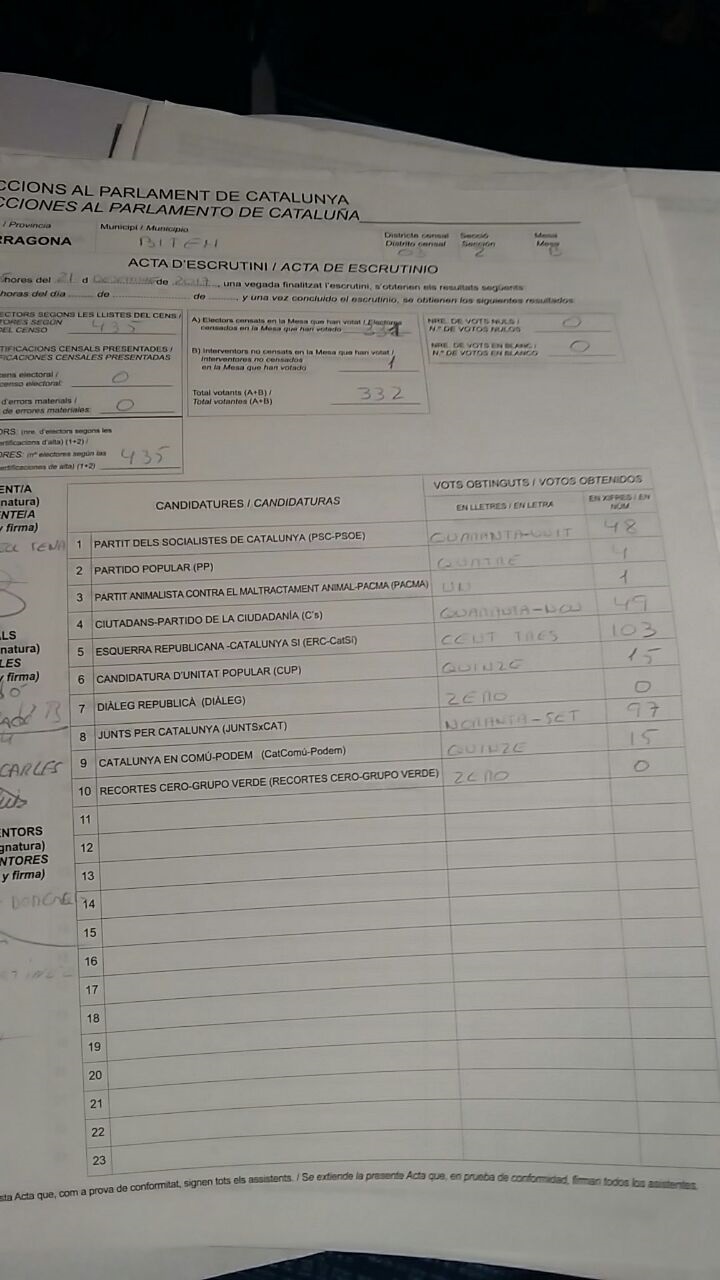 CCIONS AL PARLAMENT DE CATALUNYA
CCIONES AL PARLAMENTO DE CATALUÑA
/ Provincia
Municipi / Municipio
Districte censal
Distrito censal
Secció
Sección
Mesa
Mesa
RRAGONA
BITEM
03
2
B
ACTA D'ESCRUTINI / ACTA DE ESCRUTINIO
hores del 21 d de 2017, una vegada finalitzat l'escrutini, s'obtenen els resultats següents:
horas del día de de , y una vez concluido el escrutinio, se obtienen los siguientes resultados:
ECTORS SEGONS LES LLISTES DEL CENS /
TORES SEGÚN
DEL CENSO
435
TIFICACIONS CENSALS PRESENTADES /
FICACIONES CENSALES PRESENTADAS
cens electoral /
censo electoral:
0
d'errors materials /
de errores materiales:
0
ORS: (nre. d'electors segons les
ertificacions d'alta) (1+2) /
ORES: (nº electores según las
ertificaciones de alta) (1+2)
435
A) Electors censats en la Mesa que han votat / Electores
censados en la Mesa que han votado
331
B) Interventors no censats en la Mesa que han votat /
Interventores no censados
en la Mesa que han votado
1
Total votants (A+B) /
Total votantes (A+B)
332
NRE. DE VOTS NULS /
N.º DE VOTOS NULOS
0
NRE. DE VOTS EN BLANC /
N.º DE VOTOS EN BLANCO
0
ENT/A
natura)
ENTE/A
y firma)
CANDIDATURES / CANDIDATURAS
VOTS OBTINGUTS / VOTOS OBTENIDOS
EN LLETRES / EN LETRA
EN XIFRES / EN NÚM
1 PARTIT DELS SOCIALISTES DE CATALUNYA (PSC-PSOE) QUARANTA-VUIT 48
2 PARTIDO POPULAR (PP) QUATRE 4
3 PARTIT ANIMALISTA CONTRA EL MALTRACTAMENT ANIMAL-PACMA (PACMA) UN 1
4 CIUTADANS-PARTIDO DE LA CIUDADANÍA (C's) QUARANTA-NOU 49
5 ESQUERRA REPUBLICANA -CATALUNYA SI (ERC-CatSí) CENT TRES 103
6 CANDIDATURA D'UNITAT POPULAR (CUP) QUINZE 15
7 DIÀLEG REPUBLICÀ (DIÀLEG) ZERO 0
8 JUNTS PER CATALUNYA (JUNTSxCAT) NORANTA-SET 97
9 CATALUNYA EN COMÚ-PODEM (CatComú-Podem) QUINZE 15
10 RECORTES CERO-GRUPO VERDE (RECORTES CERO-GRUPO VERDE) ZERO 0
11
12
13
14
15
16
17
18
19
20
21
22
23
LS
natura)
LES
y firma)
CARLES
ENTORS
gnatura)
ENTORES
y firma)
sta Acta que, com a prova de conformitat, signen tots els assistents. / Se extiende la presente Acta que, en prueba de conformidad, firman todos los asistentes.